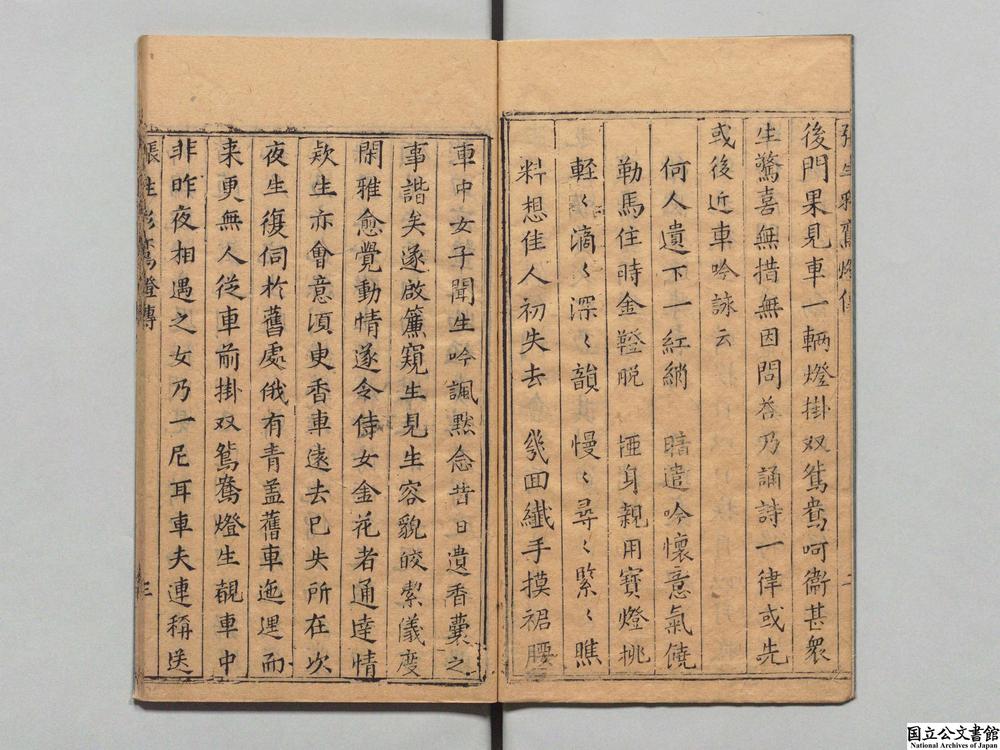 後門果見車一輌燈掛双鴛鴦呵衞甚衆
生驚喜無措無因問荅乃誦詩一律或先
或後近車吟詠云
何人遺下一紅綃　暗遣吟懷意氣饒
勒馬住時金鐙脱　㧱身親用寳燈挑
軽〻滴〻深〻韻　慢〻尋〻緊〻瞧
料想佳人初失去　幾囬纎手摸裙腰
車中女子聞生吟諷黙念昔日遺香囊之
事諧矣遂啟簾窺生見生容貌皎絜儀度
閑雅愈覺動情遂令侍女金花者通逹情
欵生亦會意須臾香車遠去已失所在次
夜生復伺於舊處俄有青盖舊車迤逦而
来更無人從車前掛双鴛鴦燈生覩車中
非昨夜相遇之女乃一尼耳車夫連稱送
張生彩鸞燈傳
三
国立公文書館
National Archives of Japan